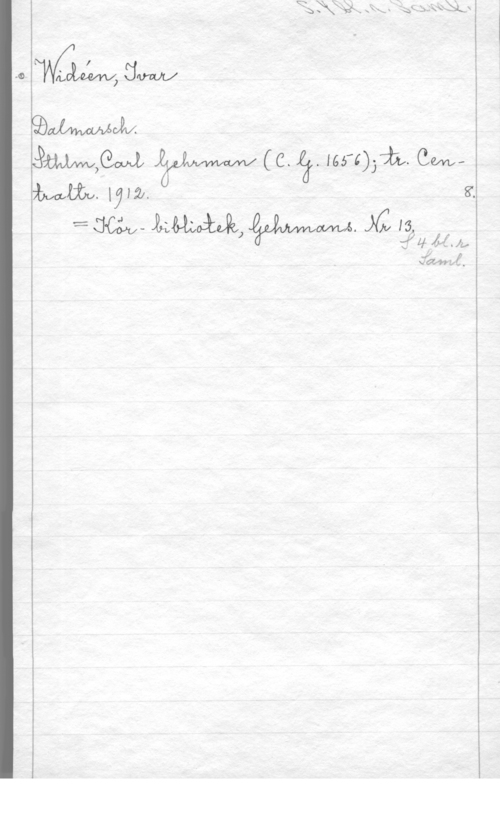 Widéen, Ivar
Dalmarsch.
Sthlm, Carl Gehrman (C. G. 1656); tr. Cen-
traltr. 1912. 8.
= Kör-bibliotek, Gehrmans. Nr 13.
S 4 bl. r
Saml.